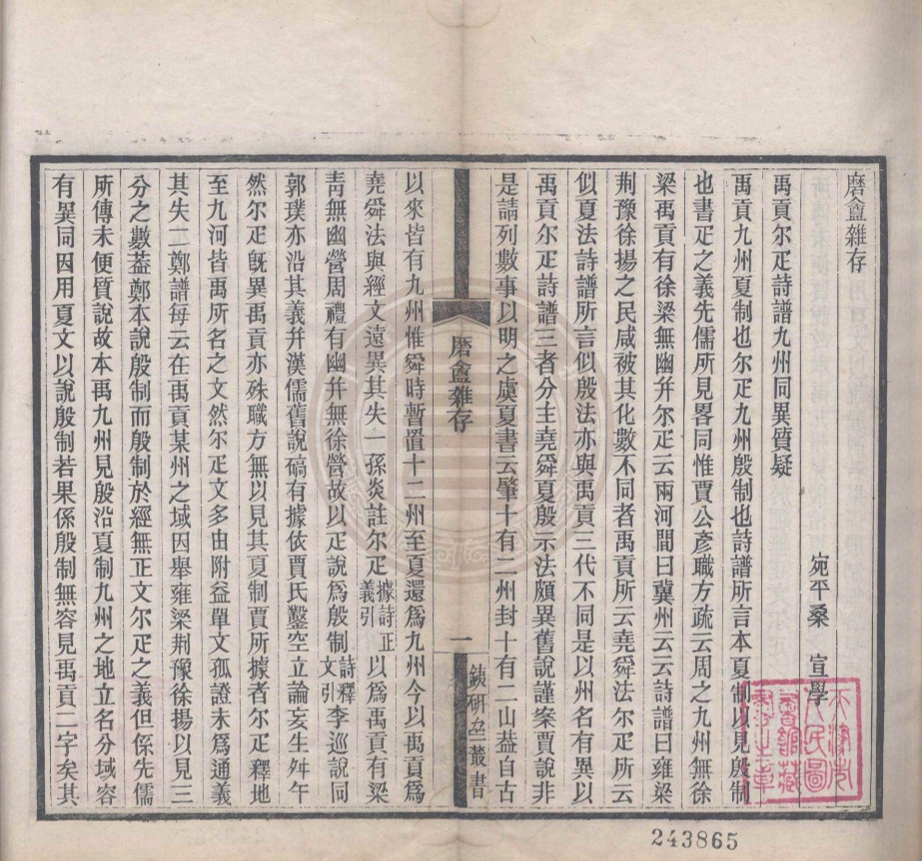 磨盦雜存
宛平桑　宣學
禹貢尔疋詩譜九州同異質疑
禹貢九州夏制也尔疋九州殷制也詩譜所言本夏制以見殷制
也書疋之義先儒所見畧同惟賈公彥職方疏云周之九州無徐
梁禹貢有徐梁無幽并尔疋云兩河間曰冀州云云詩譜曰雍梁
荆豫徐揚之民咸被其化數不同者禹貢所云堯舜法尔疋所云
似夏法詩譜所言似殷法亦與禹貢三代不同是以州名有異以
禹貢尔疋詩譜三者分主堯舜夏殷示法頗異舊說謹案賈說非
是請列數事以明之虞夏書云肇十有二州封十有二山葢自古
磨盦雜存
一
鐵研齋叢書
以來皆有九州惟舜時暫置十二州至夏還爲九州今以禹貢爲
堯舜法與經文遠異其失一孫炎註尔疋據詩正義引以爲禹貢有梁
靑無幽營周禮有幽并無徐營故以疋說爲殷制詩釋文引李巡說同
郭璞亦沿其義幷漢儒舊說碻有據依賈氏鑿空立論妄生舛午
然尔疋旣異禹貢亦殊職方無以見其夏制賈所據者尔疋釋地
至九河皆禹所名之文然尔疋文多由附益單文孤證未爲通義
其失二鄭譜每云在禹貢某州之域因舉雍梁荆豫徐揚以見三
分之數葢鄭本說殷制而殷制於經無正文尔疋之義但係先儒
所傳未便質說故本禹九州見殷沿夏制九州之地立名分域容
有異同因用夏文以說殷制若果係殷制無容見禹貢二字矣其
天津市
人民圖
書館藏
書之章
243865